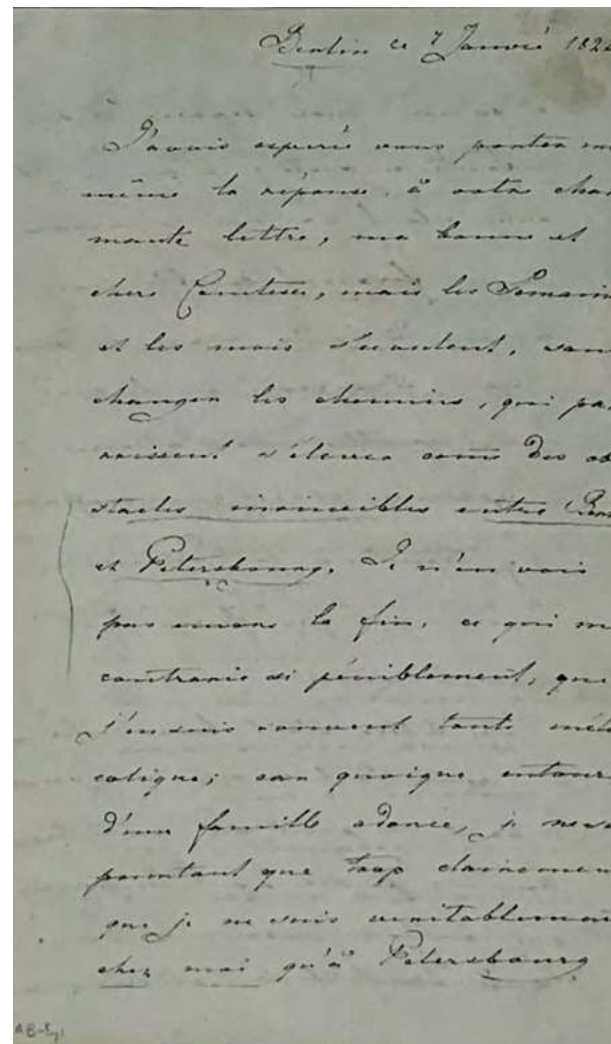 Berlin ce 7 Janvié 182
J'avais esperé vous porter mo
même la réponse, à votre char
mante lettre, ma bonne et
chere Comtesse, mais les Semaine
et les mois s'écoulent, sans
changer les chemins, qui pa
roissent s'élever come des ob
stacles invincibles entre Ber
et Petersbourg. Je n'en vois
pas encore la fin, ce qui me
contrarie si péniblement, que
j'en suis souvent toute mél
colique; car quoique entour
d'une famille adorée, je ne
pourtant que trop clairemen
que je ne suis veritablemen
chez moi qu'à Petersbourg